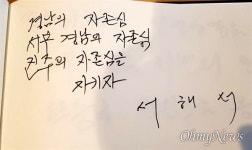 경남의 자존심
서부 경남의 자존심
진주의 자존심을
지키자
서 해 석
OhmyNews